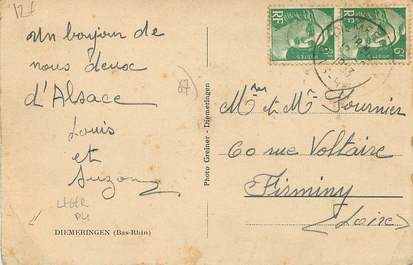 12€
Un bonjour de
nous deux
d'Alsace
Louis
et
Suzanne
LEGER
PLI
DIEMERINGEN (Bas-Rhin)
67
Photo Greiner - Diemeringen
RF
6F
POSTES
RF
6F
POSTES
Mme et Mr Fournier
60 rue Voltaire
Firminy
(Loire)